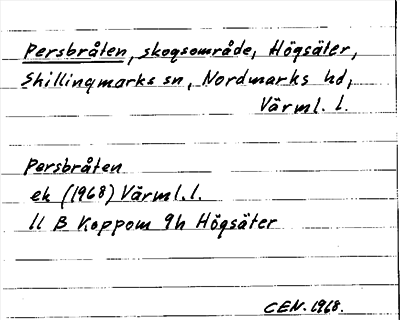 Persbråten, skogsområde, Högsäter,
Skillingmarks sn, Nordmarks hd,
Värml. l.
Persbråten
ek (1968) Värml. l.
11 B Koppom 9h Högsäter
CEN. 1968.